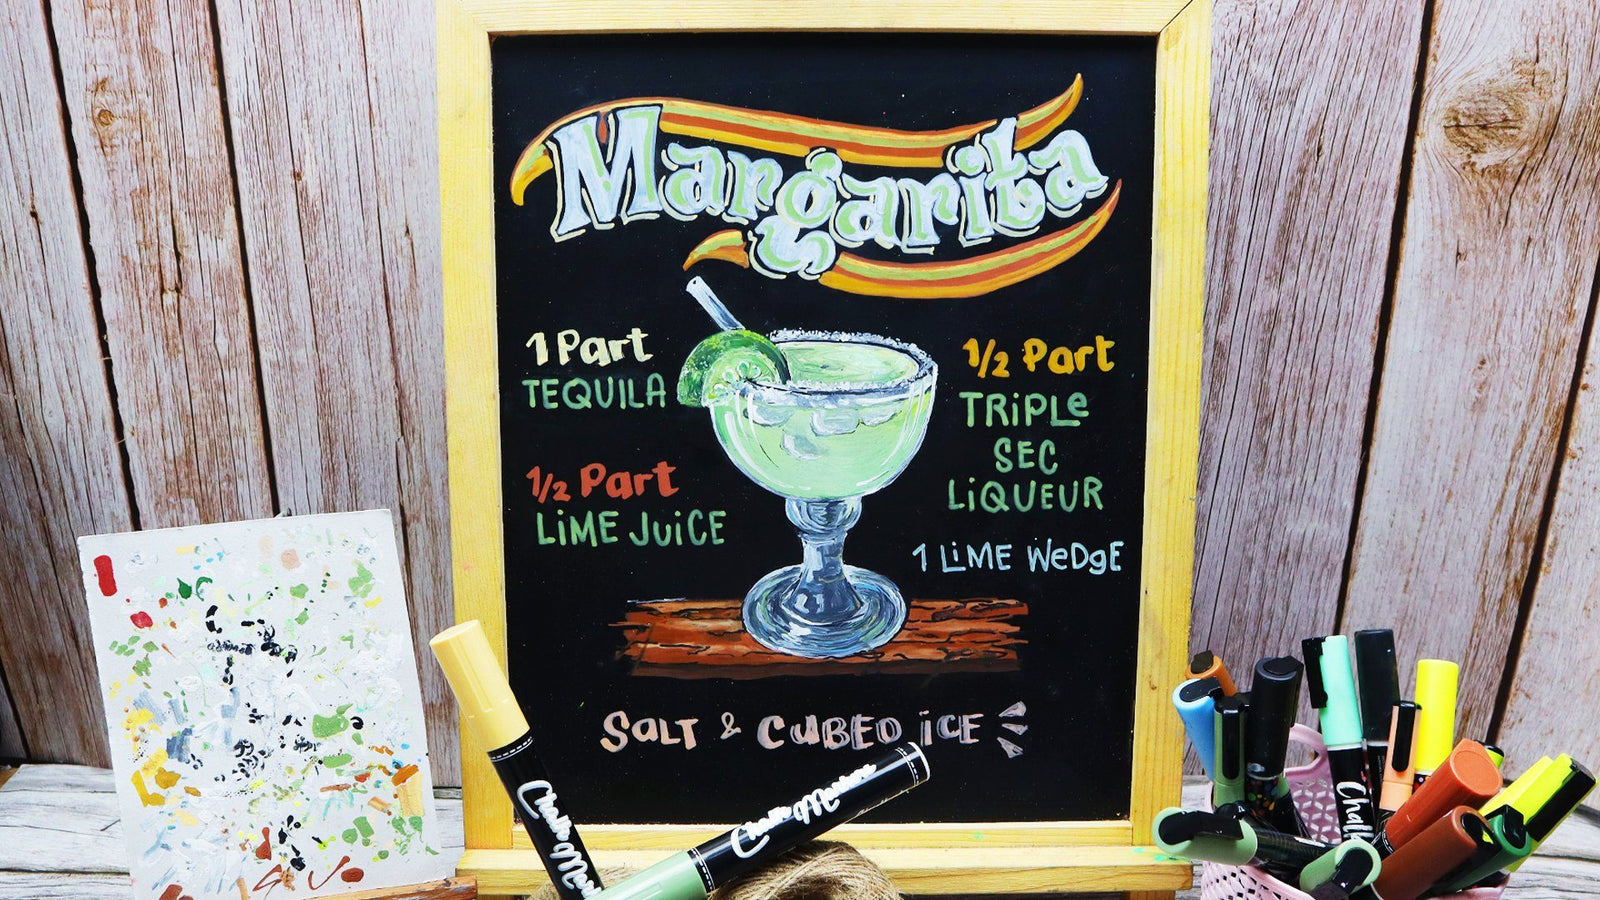 Margarita
1 Part
TEQUILA
1/2 Part
LiME JuiCE
1/2 Part
TRiPLe
SEC
LiQUEUR
1 LiME WedgE
SaLT & CUBED iCE
Chalk Mar
Chalk Markers
Chalk